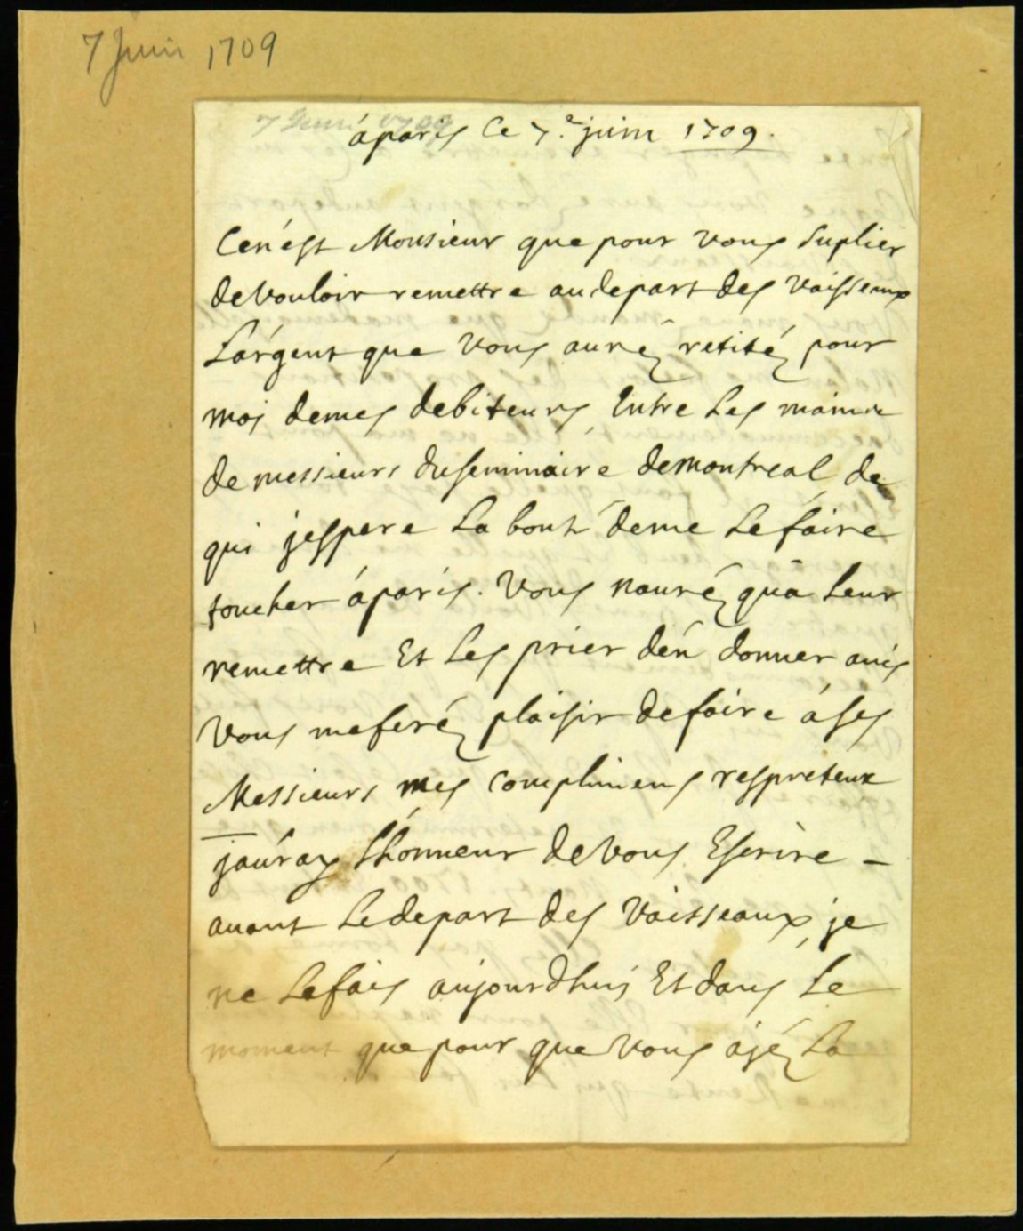 7 Juin 1709
7 Juin 1709
áparis Ce 7e juin 1709.
Cenést Monsieur que pour vous suplier
devouloir remettre audepart des vaisseaux
Largent que vous auréz retiréz pour
moi demes debiteurs, Entre Les mains
de messieurs duseminaire demontreal de
qui jespere La bonté deme Lefaire
toucher áparis. vous nauréz quá Leur
remettre Et Les prier dén donner avis
vous meferéz plaisir defaire áses
Messieurs mes complimens respecteux
jauray Lhonneur devous Escrire –
avant Ledepart des vaisseaux, je
ne Lefais aujourdhui Et dans Le
moment que pour que vous ajéz La